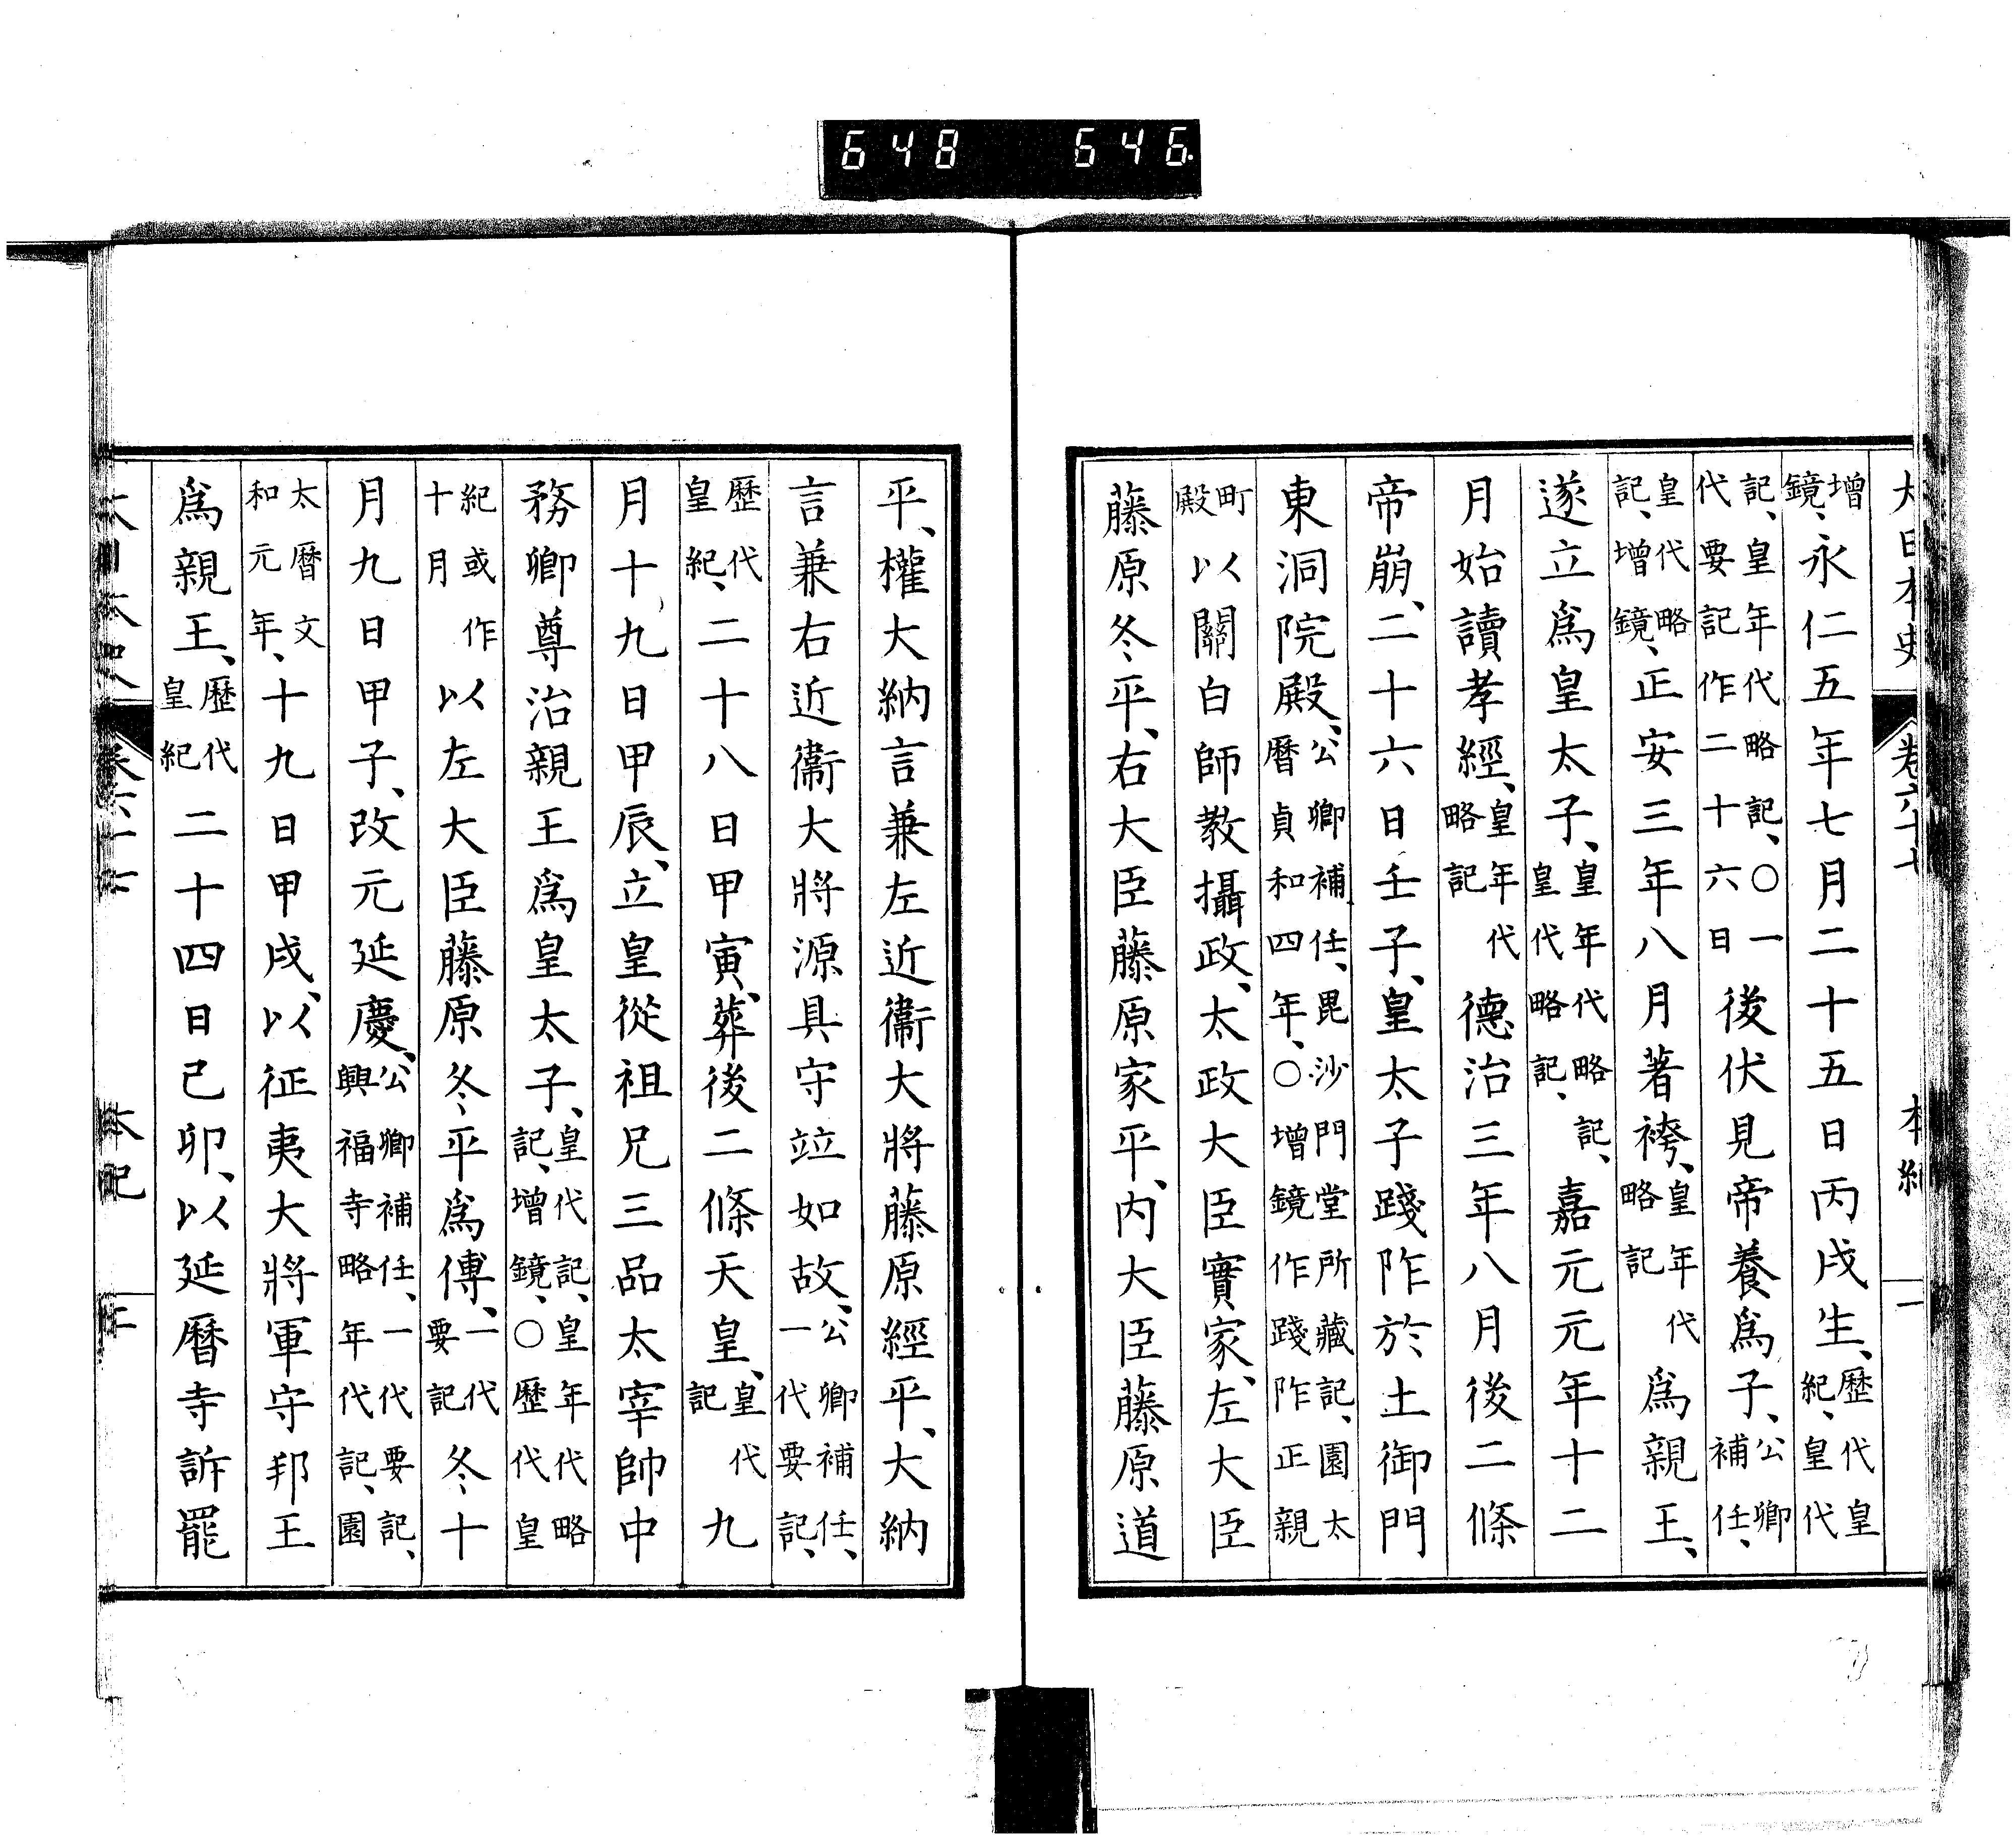 大日本史 卷六十七 本紀 一
增鏡、永仁五年七月二十五日丙戌生、歷代皇紀、皇代
記、皇年代略記、○一代要記作二十六日後伏見帝養爲子、公卿補任、
皇代略記、增鏡、正安三年八月著袴、皇年代略記爲親王、
遂立爲皇太子、皇年代略記、皇代略記、嘉元元年十二
月始讀孝經、皇年代略記德治三年八月後二條
帝崩、二十六日壬子、皇太子踐阼於土御門
東洞院殿、公卿補任、毘沙門堂所藏記、園太曆貞和四年、○增鏡作踐阼正親
町殿以關白師教攝政、太政大臣實家、左大臣
藤原冬平、右大臣藤原家平、内大臣藤原道
平、權大納言兼左近衞大將藤原經平、大納
言兼右近衞大將源具守竝如故、公卿補任、一代要記、
歷代皇紀、二十八日甲寅、葬後二條天皇、皇代記九
月十九日甲辰、立皇從祖兄三品太宰帥中
務卿尊治親王爲皇太子、皇代記、皇年代略記、增鏡、○歷代皇
紀或作十月以左大臣藤原冬平爲傅、一代要記冬十
月九日甲子、改元延慶、公卿補任、一代要記、興福寺略年代記、園
太曆文和元年、十九日甲戌、以征夷大將軍守邦王
爲親王、歷代皇紀二十四日己卯、以延曆寺訴罷
648 646